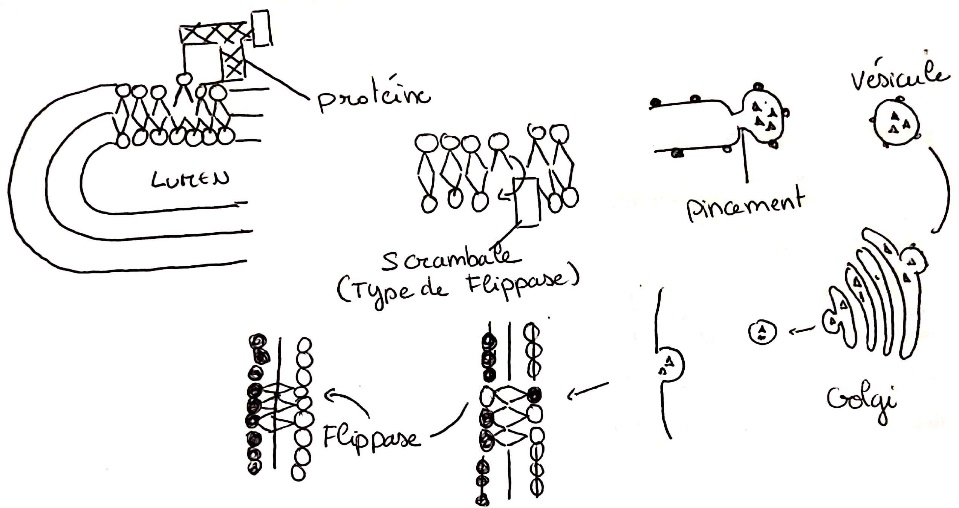 protéine
LUMEN
Scrambale
(Type de Flippase)
Pincement
Vésicule
Golgi
Flippase